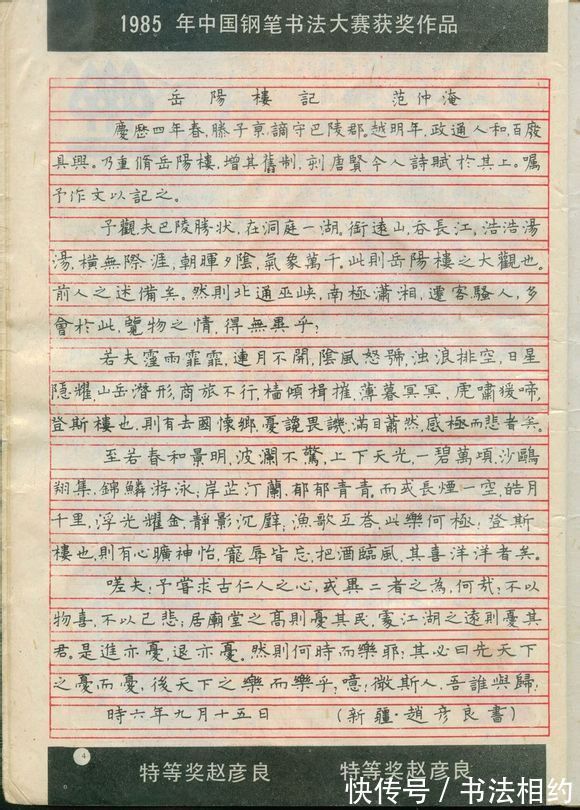 1985 年中国钢笔书法大赛获奖作品
岳陽樓記 范仲淹
慶歷四年春，滕子京，謫守巴陵郡。越明年，政通人和，百廢
具興。乃重脩岳陽樓，增其舊制，刻唐賢今人詩賦於其上。囑
予作文以記之。
予觀夫巴陵勝狀，在洞庭一湖。銜遠山，吞長江，浩浩湯
湯，橫無際涯，朝暉夕陰，氣象萬千。此則岳陽樓之大觀也。
前人之述備矣。然則北通巫峽，南極瀟湘，遷客騷人，多
會於此，覽物之情，得無異乎；
若夫霪雨霏霏，連月不開，陰風怒號，浊浪排空，日星
隱耀，山岳潛形，商旅不行，檣傾楫摧，薄暮冥冥，虎嘯猨啼，
登斯樓也，則有去國懷鄉，憂讒畏譏，滿目蕭然，感極而悲者矣。
至若春和景明，波瀾不驚，上下天光，一碧萬頃，沙鷗
翔集，錦鱗游泳；岸芷汀蘭，郁郁青青。而或長煙一空，皓月
千里，浮光耀金，靜影沉璧；漁歌互荅，此樂何極；登斯
樓也，則有心曠神怡，寵辱皆忘，把酒臨風，其喜洋洋者矣。
嗟夫；予嘗求古仁人之心，或異二者之為，何哉；不以
物喜，不以己悲；居廟堂之高則憂其民，處江湖之遠則憂其
君。是進亦憂，退亦憂。然則何時而樂耶；其必曰先天下
之憂而憂，後天下之樂而樂乎；噫；微斯人，吾誰與歸；
時六年九月十五日 （新疆·趙彦良書）
4
特等奖赵彦良 特等奖赵彦良
快传号 / 书法相约